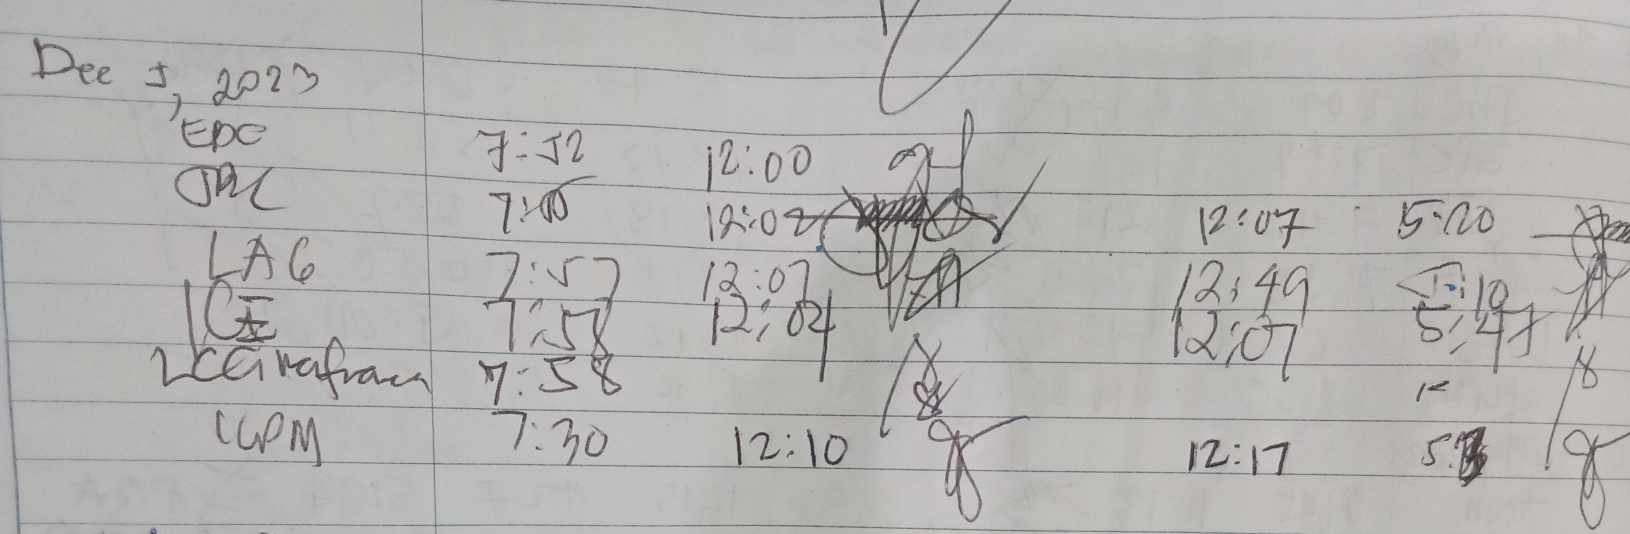 Dec 5, 2023
EDC 7:52 12:00
JRC 12:02 12:07 5:20
LAG 7:57 12:07 12:49 5:10
CE 7:58 12:04 12:07 5:47
7:58
CGPM 7:30 12:10 12:17